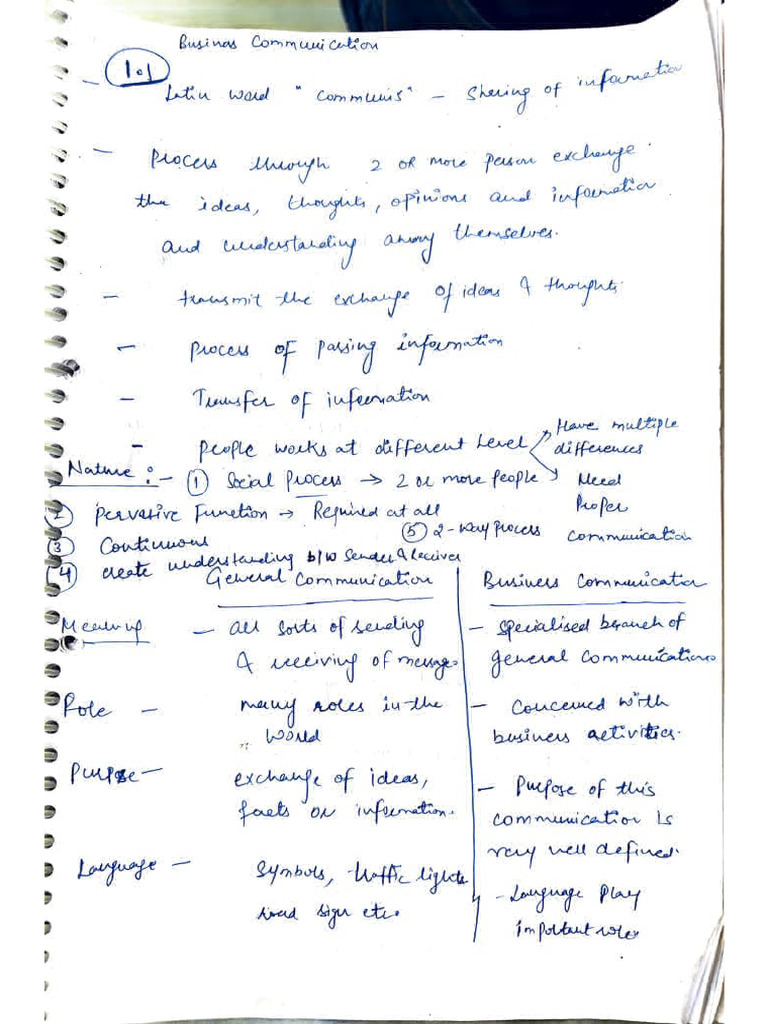 Business Communication
1.1
- Latin word "Communis" - Sharing of information
- Process through 2 or more person exchange
the ideas, thoughts, opinions and information
and understanding among themselves.
- transmit the exchange of ideas & thoughts.
- Process of passing information
- Transfer of information
- People works at different level → Have multiple differences
→ Need Proper Communication
Nature :- ① Social Process → 2 or more people
② Pervasive Function → Required at all
③ Continuous ⑤ 2-way process
④ create understanding b/w sender & receiver
General Communication | Business Communication
Meaning - all sorts of sending | - Specialised branch of
& receiving of message. | general communications
Role - many roles in the | - Concerned with
world | business activities.
Purpose - exchange of ideas, | - Purpose of this
facts or information. | communication is
very well defined.
Language - Symbols, traffic lights | - Language play
road sign etc. | important role